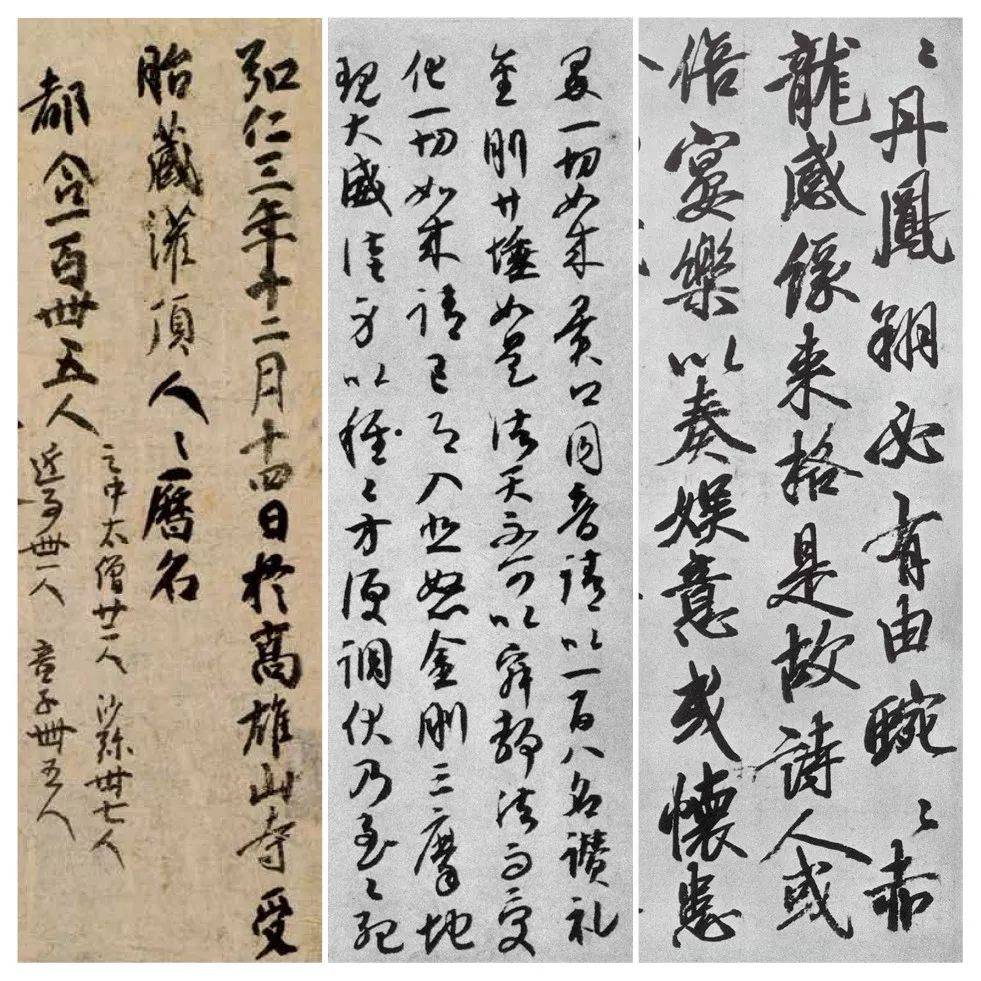 弘仁三年十二月十四日於高雄山寺受
胎藏灌頂人々暦名
都合一百卌五人
之中太僧廿二人 沙弥卅七人
近事卌一人 童子卌五人
一切如来異口同音請以一百八名讃礼
金剛廿埵如是諸天不可以寂静法而受
化一切如来請已即入悲怒金剛三摩地
現大威徳身以種々方便調伏乃至々死
々丹鳳翔必有由蜿々赤
龍感緣来格是故詩人或
倍宴樂以奏娯意或懷患